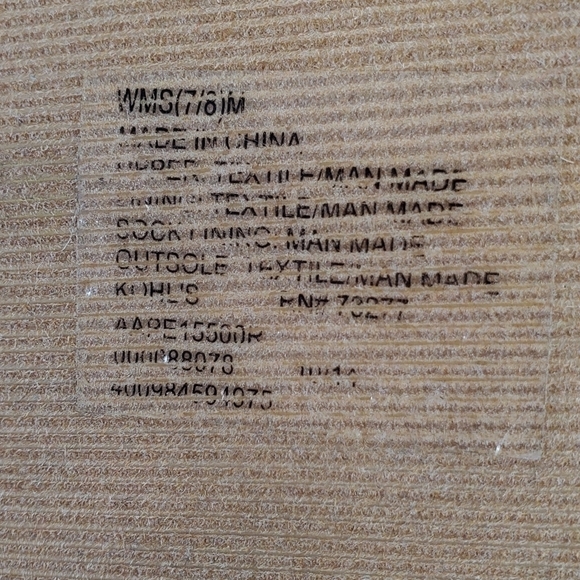 WMS(7/8)M
MADE IN CHINA
UPPER: TEXTILE/MAN MADE
LINING: TEXTILE/MAN MADE
SOCK LINING: MAN MADE
OUTSOLE TEXTILE/MAN MADE
KOHL'S RN# 73277
AAPE15500R
000088078
400984594975